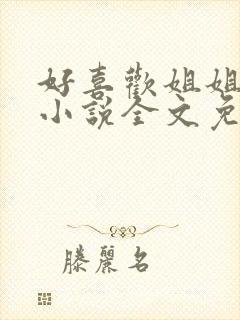 好喜歡姐姐
小說全文免
滕麗名